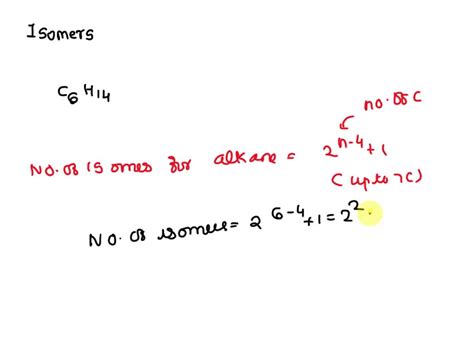 Isomers
C6H14
no. of C
No. of isomes for alkane = 2^n-4 + 1
(upto 7C)
No. of isomers = 2^6-4 + 1 = 2^2